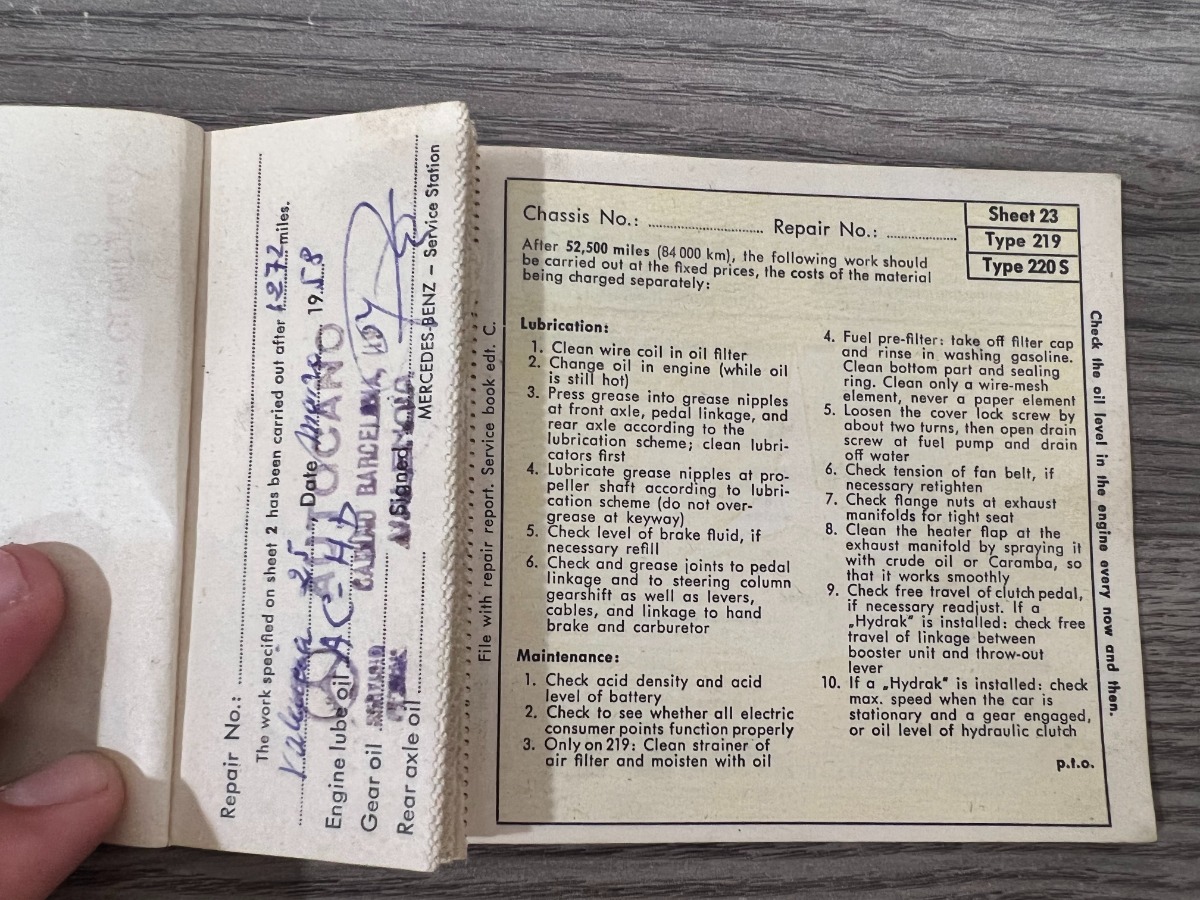 Repair No.:
The work specified on sheet 2 has been carried out after 1272 miles.
25 Date 1958
Engine lube oil
Gear oil Signed
Rear axle oil
MERCEDES-BENZ – Service Station
AUTOCANO
BARCELONA
File with repair report. Service book edt. C.
Chassis No.: Repair No.:
Sheet 23
Type 219
Type 220 S
After 52,500 miles (84 000 km), the following work should
be carried out at the fixed prices, the costs of the material
being charged separately:
Lubrication:
1. Clean wire coil in oil filter
2. Change oil in engine (while oil
is still hot)
3. Press grease into grease nipples
at front axle, pedal linkage, and
rear axle according to the
lubrication scheme; clean lubri-
cators first
4. Lubricate grease nipples at pro-
peller shaft according to lubri-
cation scheme (do not over-
grease at keyway)
5. Check level of brake fluid, if
necessary refill
6. Check and grease joints to pedal
linkage and to steering column
gearshift as well as levers,
cables, and linkage to hand
brake and carburetor
Maintenance:
1. Check acid density and acid
level of battery
2. Check to see whether all electric
consumer points function properly
3. Only on 219: Clean strainer of
air filter and moisten with oil
4. Fuel pre-filter: take off filter cap
and rinse in washing gasoline.
Clean bottom part and sealing
ring. Clean only a wire-mesh
element, never a paper element
5. Loosen the cover lock screw by
about two turns, then open drain
screw at fuel pump and drain
off water
6. Check tension of fan belt, if
necessary retighten
7. Check flange nuts at exhaust
manifolds for tight seat
8. Clean the heater flap at the
exhaust manifold by spraying it
with crude oil or Caramba, so
that it works smoothly
9. Check free travel of clutch pedal,
if necessary readjust. If a
„Hydrak" is installed: check free
travel of linkage between
booster unit and throw-out
lever
10. If a „Hydrak" is installed: check
max. speed when the car is
stationary and a gear engaged,
or oil level of hydraulic clutch
p.t.o.
Check the oil level in the engine every now and then.